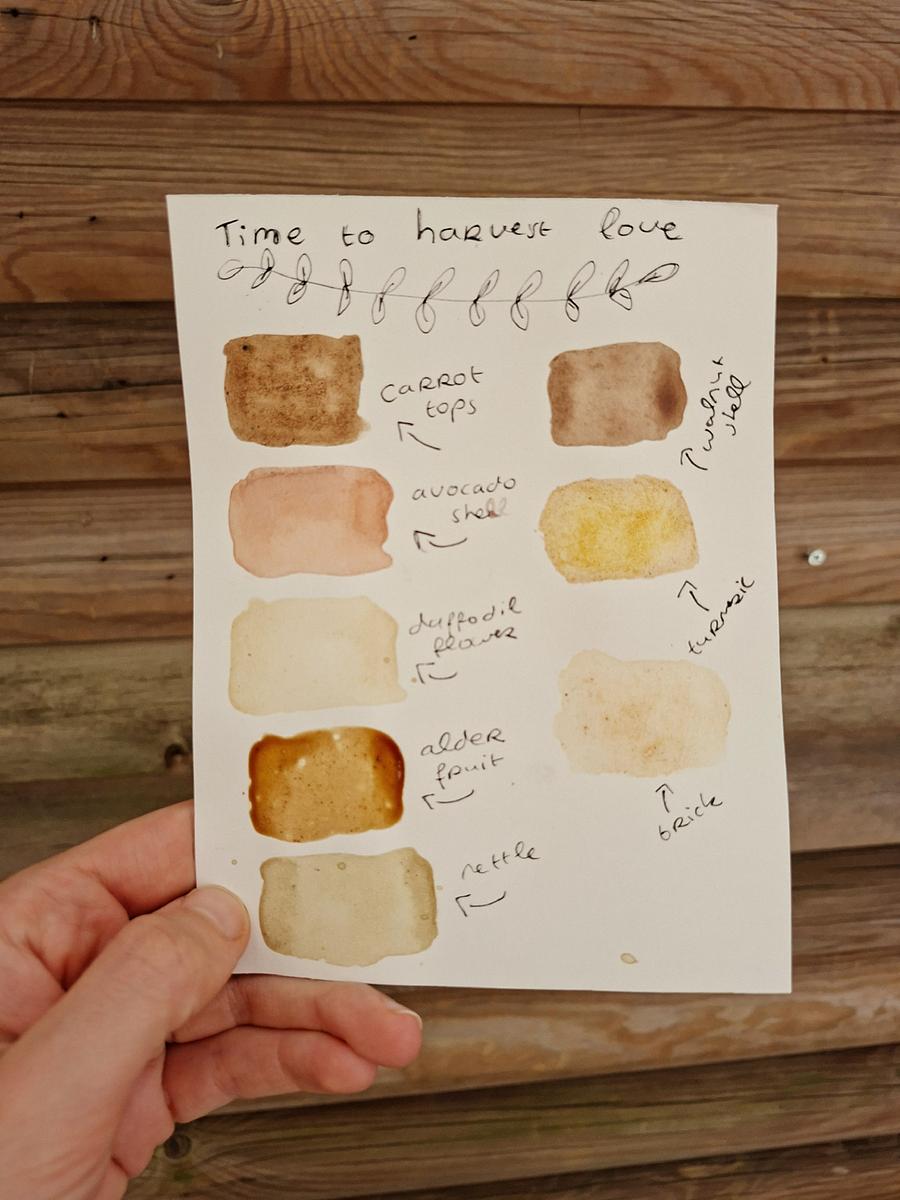 Time to harvest love
carrot
tops
avocado
shell
daffodil
flower
alder
fruit
nettle
walnut
shell
turmeric
brick